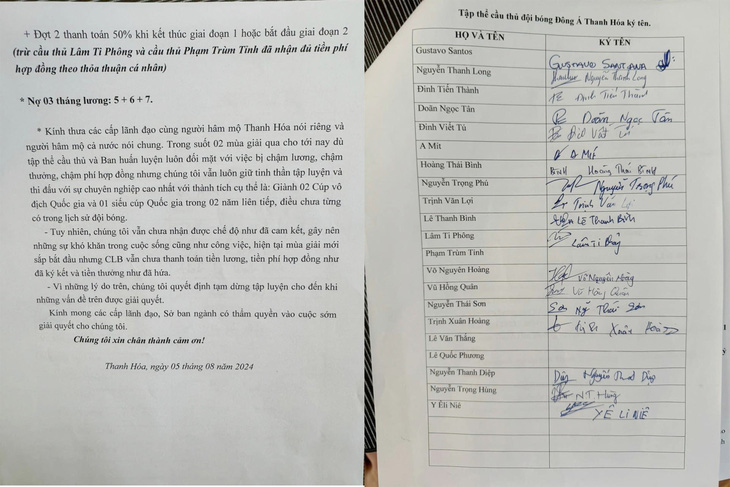 + Đợt 2 thanh toán 50% khi kết thúc giai đoạn 1 hoặc bắt đầu giai đoạn 2
(trừ cầu thủ Lâm Ti Phông và cầu thủ Phạm Trùm Tỉnh đã nhận đủ tiền phí
hợp đồng theo thỏa thuận cá nhân)
* Nợ 03 tháng lương: 5 + 6 + 7.
* Kính thưa các cấp lãnh đạo cùng người hâm mộ Thanh Hóa nói riêng và
người hâm mộ cả nước nói chung. Trong suốt 02 mùa giải qua cho tới nay dù
tập thể cầu thủ và Ban huấn luyện luôn đối mặt với việc bị chậm lương, chậm
thưởng, chậm phí hợp đồng nhưng chúng tôi vẫn luôn giữ tinh thần tập luyện và
thi đấu với sự chuyên nghiệp cao nhất với thành tích cụ thể là: Giành 02 Cúp vô
địch Quốc gia và 01 siêu cúp Quốc gia trong 02 năm liên tiếp, điều chưa từng
có trong lịch sử đội bóng.
- Tuy nhiên, chúng tôi vẫn chưa nhận được chế độ như đã cam kết, gây nên
những sự khó khăn trong cuộc sống cũng như công việc, hiện tại mùa giải mới
sắp bắt đầu nhưng CLB vẫn chưa thanh toán tiền lương, tiền phí hợp đồng như
đã ký kết và tiền thưởng như đã hứa.
- Vì những lý do trên, chúng tôi quyết định tạm dừng tập luyện cho đến khi
những vấn đề trên được giải quyết.
Kính mong các cấp lãnh đạo, Sở ban ngành có thẩm quyền vào cuộc sớm
giải quyết cho chúng tôi.
Chúng tôi xin chân thành cảm ơn!
Thanh Hóa, ngày 05 tháng 08 năm 2024
Tập thể cầu thủ đội bóng Đông Á Thanh Hóa ký tên.
HỌ VÀ TÊN KÝ TÊN
Gustavo Santos GUSTAVO SANTANA
Nguyễn Thanh Long Nguyễn Thanh Long
Đinh Tiến Thành Đinh Tiến Thành
Doãn Ngọc Tân Doãn Ngọc Tân
Đinh Viết Tú Đinh Viết Tú
A Mít A Mít
Hoàng Thái Bình Bình Hoàng Thái Bình
Nguyễn Trọng Phú Nguyễn Trọng Phú
Trịnh Văn Lợi Trịnh Văn Lợi
Lê Thanh Bình Lê Thanh Bình
Lâm Ti Phông Lâm Ti Phông
Phạm Trùm Tỉnh
Võ Nguyên Hoàng Võ Nguyên Hoàng
Vũ Hồng Quân Vũ Hồng Quân
Nguyễn Thái Sơn Sơn Ng Thái Sơn
Trịnh Xuân Hoàng Xuân Hoàng
Lê Văn Thắng
Lê Quốc Phương
Nguyễn Thanh Diệp Diệp Nguyễn Thanh Diệp
Nguyễn Trọng Hùng NT Hùng
Y Êli Niê Y ÊLI NIÊ